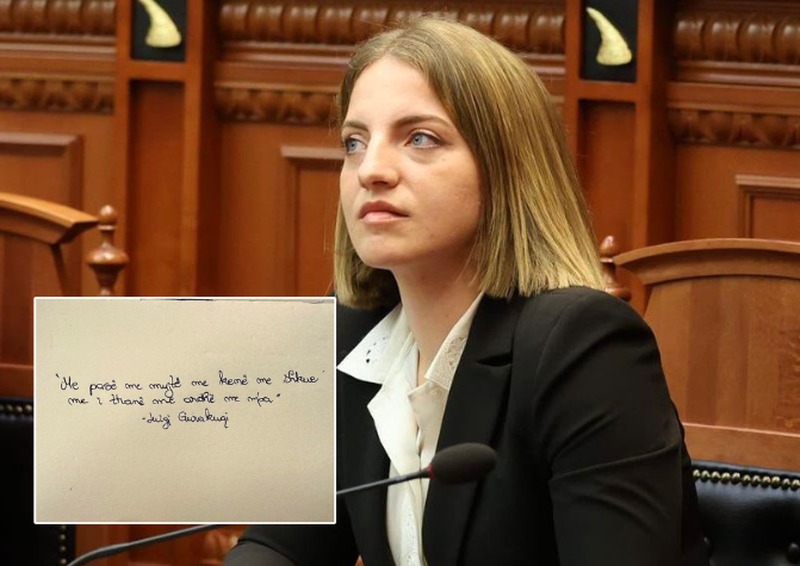 "Me pasë me mujtë me kenë me shkue
me i thanë me ardhë me mpa"
- Luigj Gurakuqi